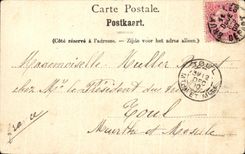 Carte Postale.
Postkaart.
(Côté réservé à l'adresse. — Zijde voor het adres alleen.)
Mademoiselle Muller
chez Mr le Président du
Toul
Meurthe et Moselle
France
TOUL
DEC